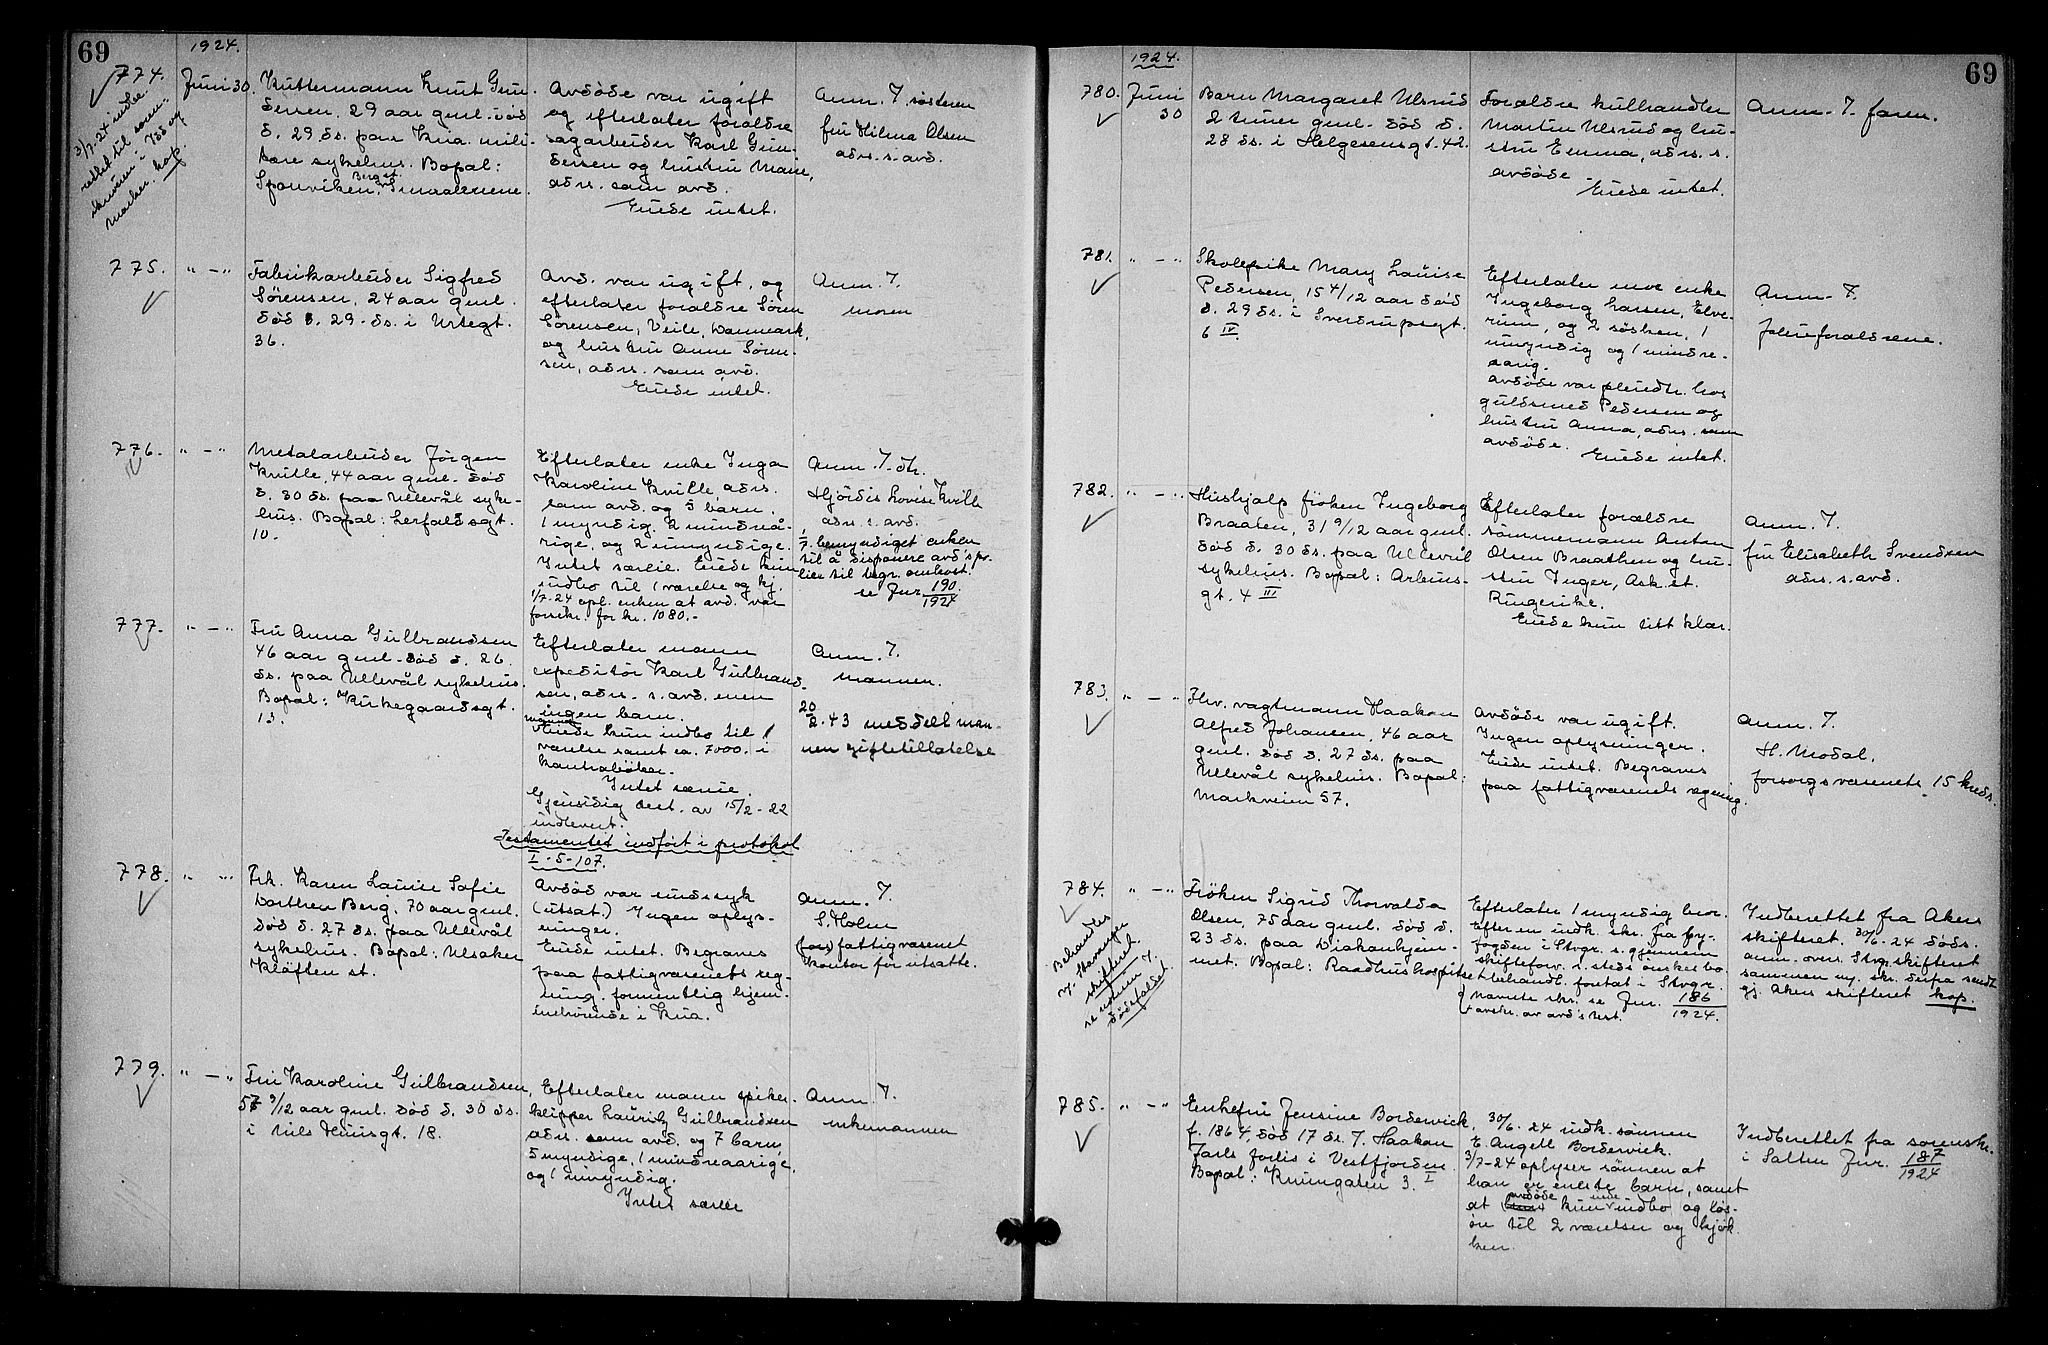 69
1924.
774.
Juni 30.
3/7-24 indbe-
rettet til soren-
skriveren i Idd og
Marker. kop.
Kuttermann Knut Gun-
dersen, 29 aar gml. död
d. 29 ds. paa Kria. mili-
tære sykehus. Bopal:
Sponviken, Berg st. Smaalenene.
Avdöde var ugift
og efterlater forældre
sagarbeider Karl Gun-
dersen og hustru Marie,
adrs. som avd.
Eiede intet.
Anm. 7. søsteren
fru Hilma Olsen
adrs. s. avd.
775.
" — "
Fabrikarbeider Sigfred
Sörensen, 24 aar gml.
död d. 29. ds. i Urtegt.
36.
Avd. var ugift, og
efterlater forældre Sören
Sörensen, Veile, Danmark,
og hustru Anne Sören-
sen, adrs. som avd.
Eiede intet.
Anm. 7.
moren
776.
" — "
Metalarbeider Jörgen
Kville, 44 aar gml. död
d. 30 ds. paa Ullevål syke-
hus. Bopal: Lerfaldsgt.
10.
Efterlater enke Inga
Karoline Kville, adrs.
som avd. og 5 barn.
1 myndig, 2 mindreå-
rige, og 2 umyndige.
Intet særeie. Eiede kun
indbo til 1 værelse og kj.
1/7-24 opl. enken at avd. var
forsikr. for kr. 1080.-
Anm. 7. dtr.
Hjördis Lovise Kville
adrs. s. avd.
1/7 bemyndiget enken
til å disponere avd's po-
lise til begr. omkost.
se Jnr. 190
1924
777.
" — "
Fru Anna Gulbrandsen
46 aar gml. död d. 26.
ds. paa Ullevål sykehus.
Bopal: Kirkegaardsgt.
13.
Efterlater mann
expeditör Karl Gulbrand-
sen, adrs. s. avd. men
ingen barn.
Eiede kun indbo til 1
værelse samt ca. 7000. i
kontraböker.
Intet særeie.
Gjensidig test. av 15/2-22
indlevert.
Testamentet indfört i protokol
I-5-107.
Anm. 7.
mannen.
20
2.43 meddelt man-
nen giftetillatelse
778.
" — "
Frk. Karen Laurie Sofie
Dorthea Berg. 70 aar gml.
död d. 27 ds. paa Ullevål
sykehus. Bopal: Ulsaker
Klöften st.
Avdöd var sindssyk
(utsat.) Ingen oplys-
ninger.
Eiede intet. Begraves
paa fattigvæsenets reg-
ning. formentlig hjem-
mehörende i Kria.
Anm. 7.
S. Holm
(for) fattigvæsenet
kontor for utsatte.
779.
" — "
Fru Karoline Gulbrandsen,
57 9/12 aar gml. död d. 30 ds.
i Nils Huusgt. 18.
Efterlater mann spiker-
klipper Lauritz Gulbrandsen
adrs. som avd. og 7 barn,
5 myndige, 1 mindreaarige,
og 1 umyndig.
Intet særeie
Anm. 7.
enkemannen
69
1924.
780.
Juni
30
Barn Margaret Ulsrud
2 timer gml. död d.
28 ds. i Helgesensgt. 42.
Forældre kulhandler
Martin Ulsrud og hu-
stru Emma, adrs. s.
avdöde.
Eiede intet.
Anm. 7. faren.
781.
" — "
Skolepike Mary Louise
Pedersen, 15 4/12 aar död
d. 29 ds. i Sverdrupsgt.
6 IV.
Efterlater mor enke
Ingeborg Larsen, Elve-
rum, og 2 sösken, 1
umyndig og 1 mindre-
aarig.
Avdöde var pleiedtr. hos
guldsmed Pedersen og
hustru Anna, adrs. som
avdöde.
Eiede intet.
Anm. 7.
pleieforældrene.
782.
" — "
Hushjælp fröken Ingeborg
Braaten, 31 9/12 aar gml.
död d. 30 ds. paa Ullevål
sykehus. Bopal: Arbins-
gt. 4 III
Efterlater forældre
tömmermann Anton
Olsen Braathen og hu-
stru Inger, Ask st.
Ringerike.
Eiede kun litt klær.
Anm. 7.
fru Elisabeth Svendsen
adrs. s. avd.
783.
" — "
Fhv. vagtmann Haakon
Alfred Johansen, 46 aar
gml. död d. 27 ds. paa
Ullevål sykehus. Bopal:
Markveien 57.
Avdöde var ugift.
Ingen oplysninger.
Eiede intet. Begraves
paa fattigvæsenets regning.
Anm. 7.
H. Modal.
forsorgsvæsenets 15 kreds.
784.
" — "
Behandles
v. Stavanger
skifteret.
se under 7.
dödsfaldet.
Fröken Sigrid Thorvalda
Olsen, 75 aar gml. död d.
23 ds. paa Diakonhjem-
met. Bopal: Raadhushospitset
Efterlater 1 myndig bror.
Efter en indk. skr. fra by-
fogden i Stvgr. s. gjennem
skifteforv. i. steds önskes bo-
behandl. foretat i Stvgr.
Nævnte skr. se Jnr. 186
1924.
+ avskr. av avd's test.
Indberettet fra Aker
skifteret. 30/6-24 döds.
anm. overs. Stvgr. skifteret
sammen m. skr. derfra sendt
gj. Akers skifteret kop.
785.
" — "
Enkefru Jensine Bordewick,
f. 1864, död 17 ds. 7. Haakon
Jarls forlis i Vestfjorden.
Bopal: Kruugaten 3. I
30/6-24 indk. sönnen
E. Angell Bordewick.
3/7-24 oplyser sönnen at
han er eneste barn, samt
at avdöde kun eiede indbo og lös-
öre til 2 værelser og kjök-
ken.
Indberettet fra sorenskr.
i Salten Jnr. 187
1924